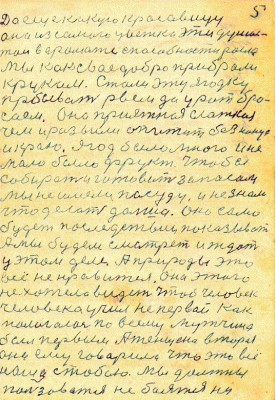 5
До еще какую красавицу
она из самого цветка эти душис-
той в аромате способности родила
Мы как свое добро прибрали
к рукам. Стали эту ягодку
пробыват рвем да у рот бро-
саем. Она приятная сладкая
чем и развили аппетит без конца
и краю. Ягод было много и не
мало было фрукт. Чтобы
собирать готовить запасом
мы не имели посуду, и не знали
что делать дальше. Оно само
будет последствии показыват
А мы будем смотреть и ждать
у этом деле. А природы это
всё не нравится. Она этого
не хотела видеть чтоб человек
человека учил не первой как
полагалось по всему мужчина
был первым А женщина вторая
она ему говорила что это всё
наше с тобою. Мы должны
пользоватся не боятся ни